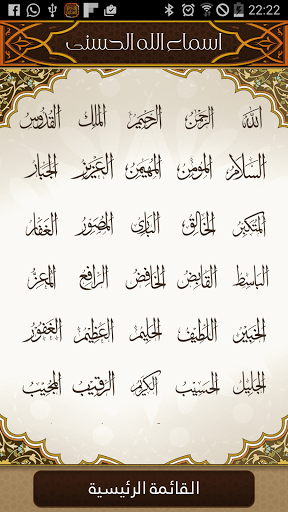 22:22
اسماء الله الحسنى
الله الرحمن الرحيم الملك القدوس
السلام المؤمن المهيمن العزيز الجبار
المتكبر الخالق البارئ المصور الغفار
الباسط القابض الخافض الرافع المعز
الخبير اللطيف الحليم العظيم الغفور
الجليل الحسيب الكريم الرقيب المجيب
القائمة الرئيسية